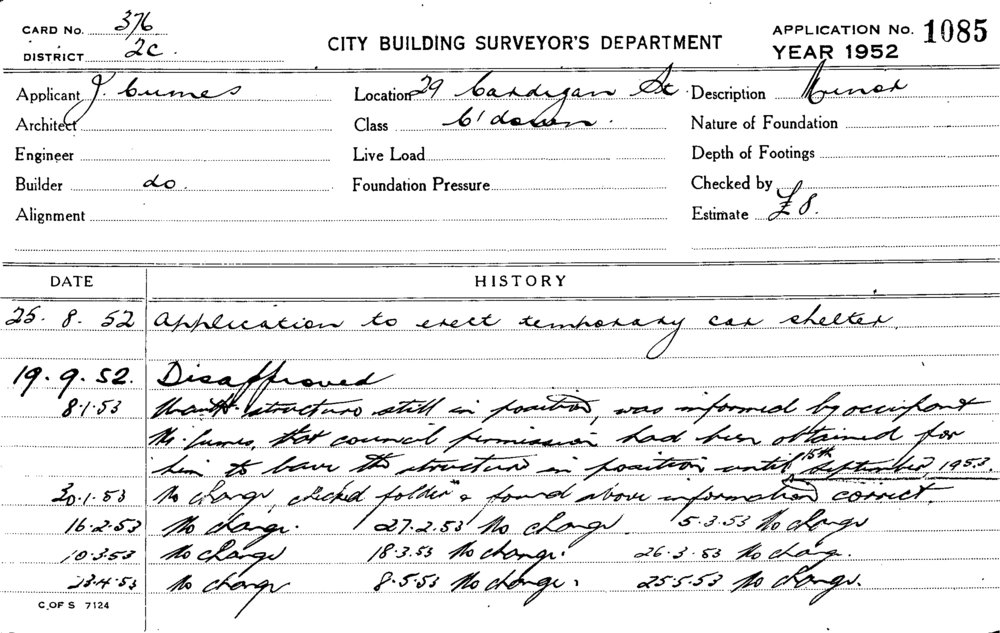 CARD NO. 376
DISTRICT 2C.
CITY BUILDING SURVEYOR'S DEPARTMENT
APPLICATION NO. 1085
YEAR 1952
Applicant J. Cumes Location 29 Cardigan St. Description Minor
Architect Class C'down. Nature of Foundation
Engineer Live Load Depth of Footings
Builder do. Foundation Pressure Checked by
Alignment Estimate £8.
DATE HISTORY
25. 8. 52 Application to erect temporary car shelter.
19. 9. 52. Disapproved
8.1.53 structure still in position, was informed by occupant
Mr Cumes, that council permission had been obtained for
him to have the structure in position until 15th September, 1953.
20.1.53 No change, checked folder & found above information correct.
16.2.53 No change. 27.2.53 No change 5.3.53 No change
10.3.53 No change 18.3.53 No change. 26.3.53 No chang.
23.4.53 No change 8.5.53 No change. 25.5.53 No change.
C. OF S 7124